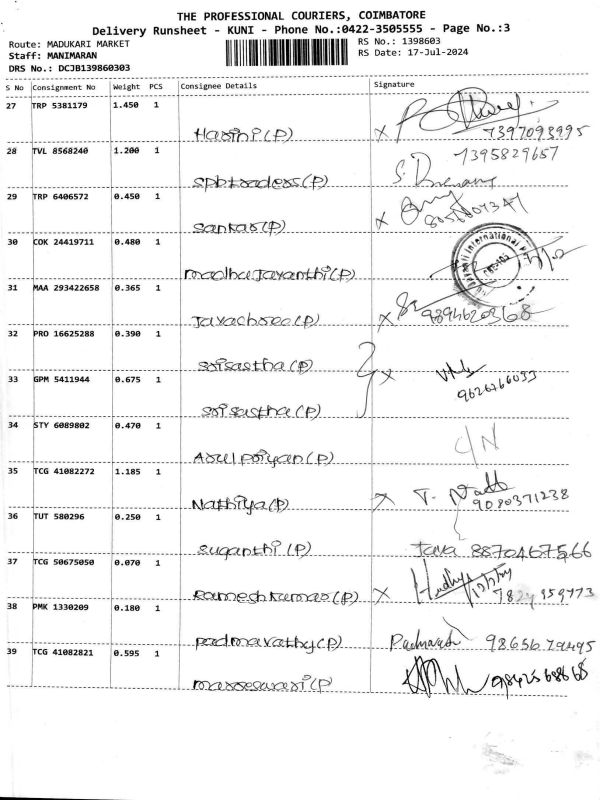 THE PROFESSIONAL COURIERS, COIMBATORE
Delivery Runsheet - KUNI - Phone No.:0422-3505555 - Page No.:3
Route: MADUKARI MARKET RS No.: 1398603
Staff: MANIMARAN RS Date: 17-Jul-2024
DRS No.: DCJB139860303
S No Consignment No Weight PCS Consignee Details Signature
27 TRP 5381179 1.450 1
Harini(P) x 7397093995
28 TVL 8568240 1.200 1 7395829657
spbtraders(P)
29 TRP 6406572 0.450 1
Sankar(P) x
30 COK 24419711 0.480 1
madhaJayanthi(P)
31 MAA 293422658 0.365 1
Jayachsee(P) x 9894620368
32 PRO 16625288 0.390 1
srisastha(P) x
33 GPM 5411944 0.675 1 9626766033
srisastha(P)
34 STY 6089802 0.470 1 C/N
Arulpriyan(P)
35 TCG 41082272 1.185 1
Nathiya(P) x 9080371238
36 TUT 580296 0.250 1
suganthi(P) Jaya 8870467566
37 TCG 50675050 0.070 1
Rameshkumar(P) x
38 PMK 1330209 0.180 1
padmavathy(P) Padmavathi 9865679495
39 TCG 41082821 0.595 1
mareeswari(P) 9842568668